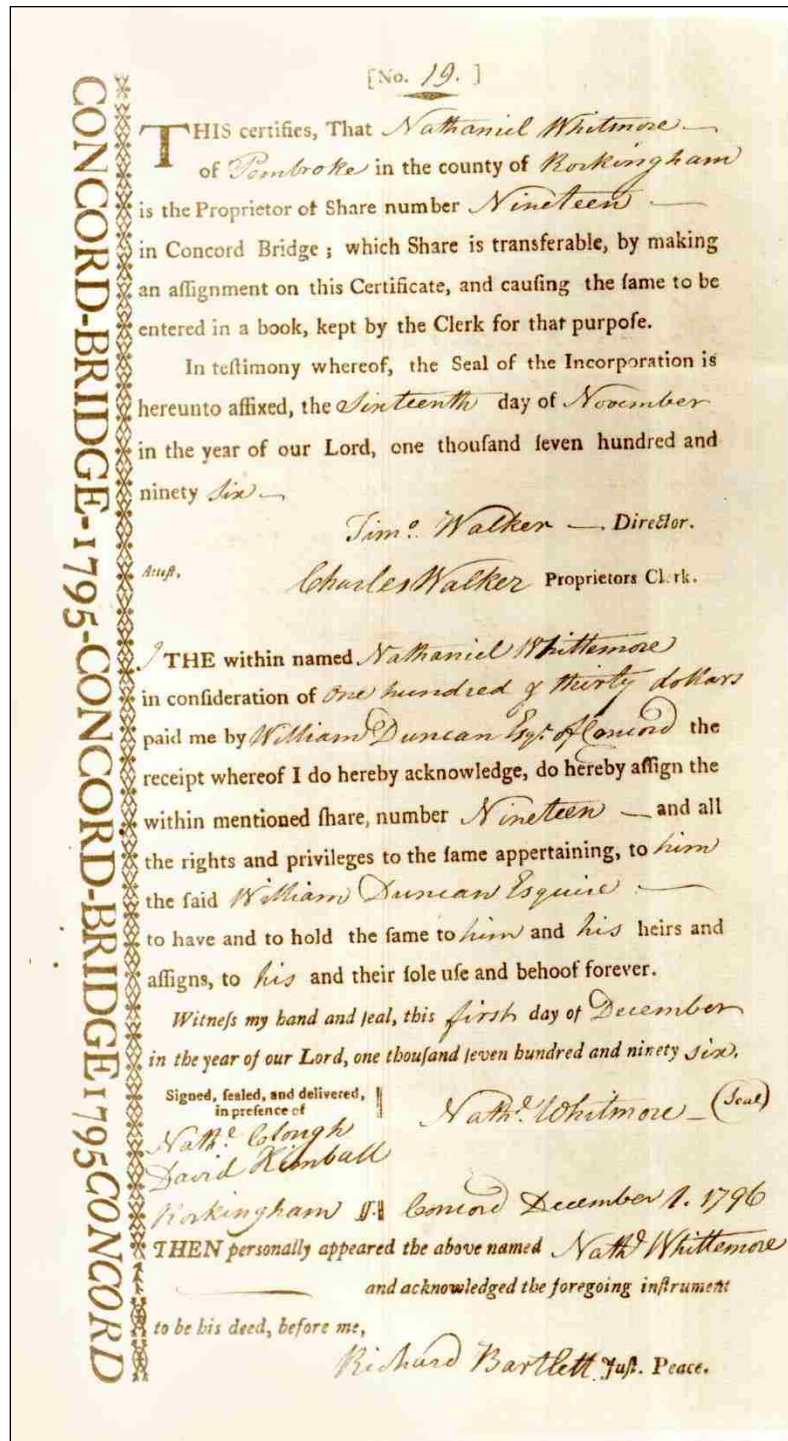 CONCORD-BRIDGE-1795-CONCORD-BRIDGE 1795 CONCORD
[No. 19. ]
THIS certifies, That Nathaniel Whitmore
of Pembroke in the county of Rockingham
is the Proprietor of Share number Nineteen
in Concord Bridge ; which Share is transferable, by making
an aſſignment on this Certificate, and cauſing the ſame to be
entered in a book, kept by the Clerk for that purpoſe.
In teſtimony whereof, the Seal of the Incorporation is
hereunto affixed, the Sixteenth day of November
in the year of our Lord, one thouſand ſeven hundred and
ninety six
Timo. Walker Director.
Atteſt, Charles Walker Proprietors Clerk.
I THE within named Nathaniel Whittemore
in conſideration of one hundred & thirty dollars
paid me by William Duncan Esqr. of Concord the
receipt whereof I do hereby acknowledge, do hereby aſſign the
within mentioned ſhare, number Nineteen and all
the rights and privileges to the ſame appertaining, to him
the ſaid William Duncan Esquire
to have and to hold the ſame to him and his heirs and
aſſigns, to his and their ſole uſe and behoof forever.
Witneſs my hand and ſeal, this first day of December
in the year of our Lord, one thouſand ſeven hundred and ninety six.
Signed, ſealed, and delivered,
in preſence of
Nathl. Whitmore (Seal)
Nathl. Clough
David Kimball
Rockingham ſſ. Concord December 1. 1796
THEN perſonally appeared the above named Nathl Whittemore
and acknowledged the foregoing inſtrument
to be his deed, before me,
Richard Bartlett Juſt. Peace.